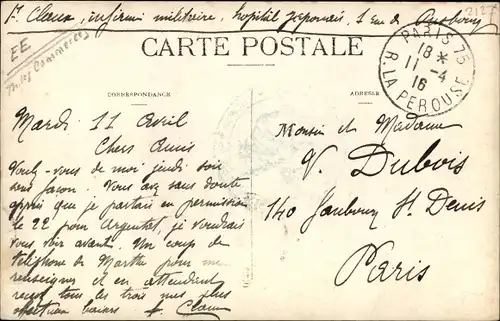 F. Claux, infirmier militaire, hopital japonais, 1 rue de Presbourg
EE
2127
CARTE POSTALE
PARIS 75
18 *
11 - 4
16
R. LA PEROUSE
CORRESPONDANCE
ADRESSE
Mardi 11 Avril
Chers Amis
Voulez-vous de moi jeudi soir
sans façon. Vous avez sans doute
appris que je partais en permission
le 22 pour Argentat, je voudrais
vous voir avant. Un coup de
téléphone de Marthe pour me
renseigner et en attendant
recevez tous les trois mes plus
affectueux baisers F. Claux
Monsieur et Madame
V. Dubois
140 Faubourg St. Denis
Paris